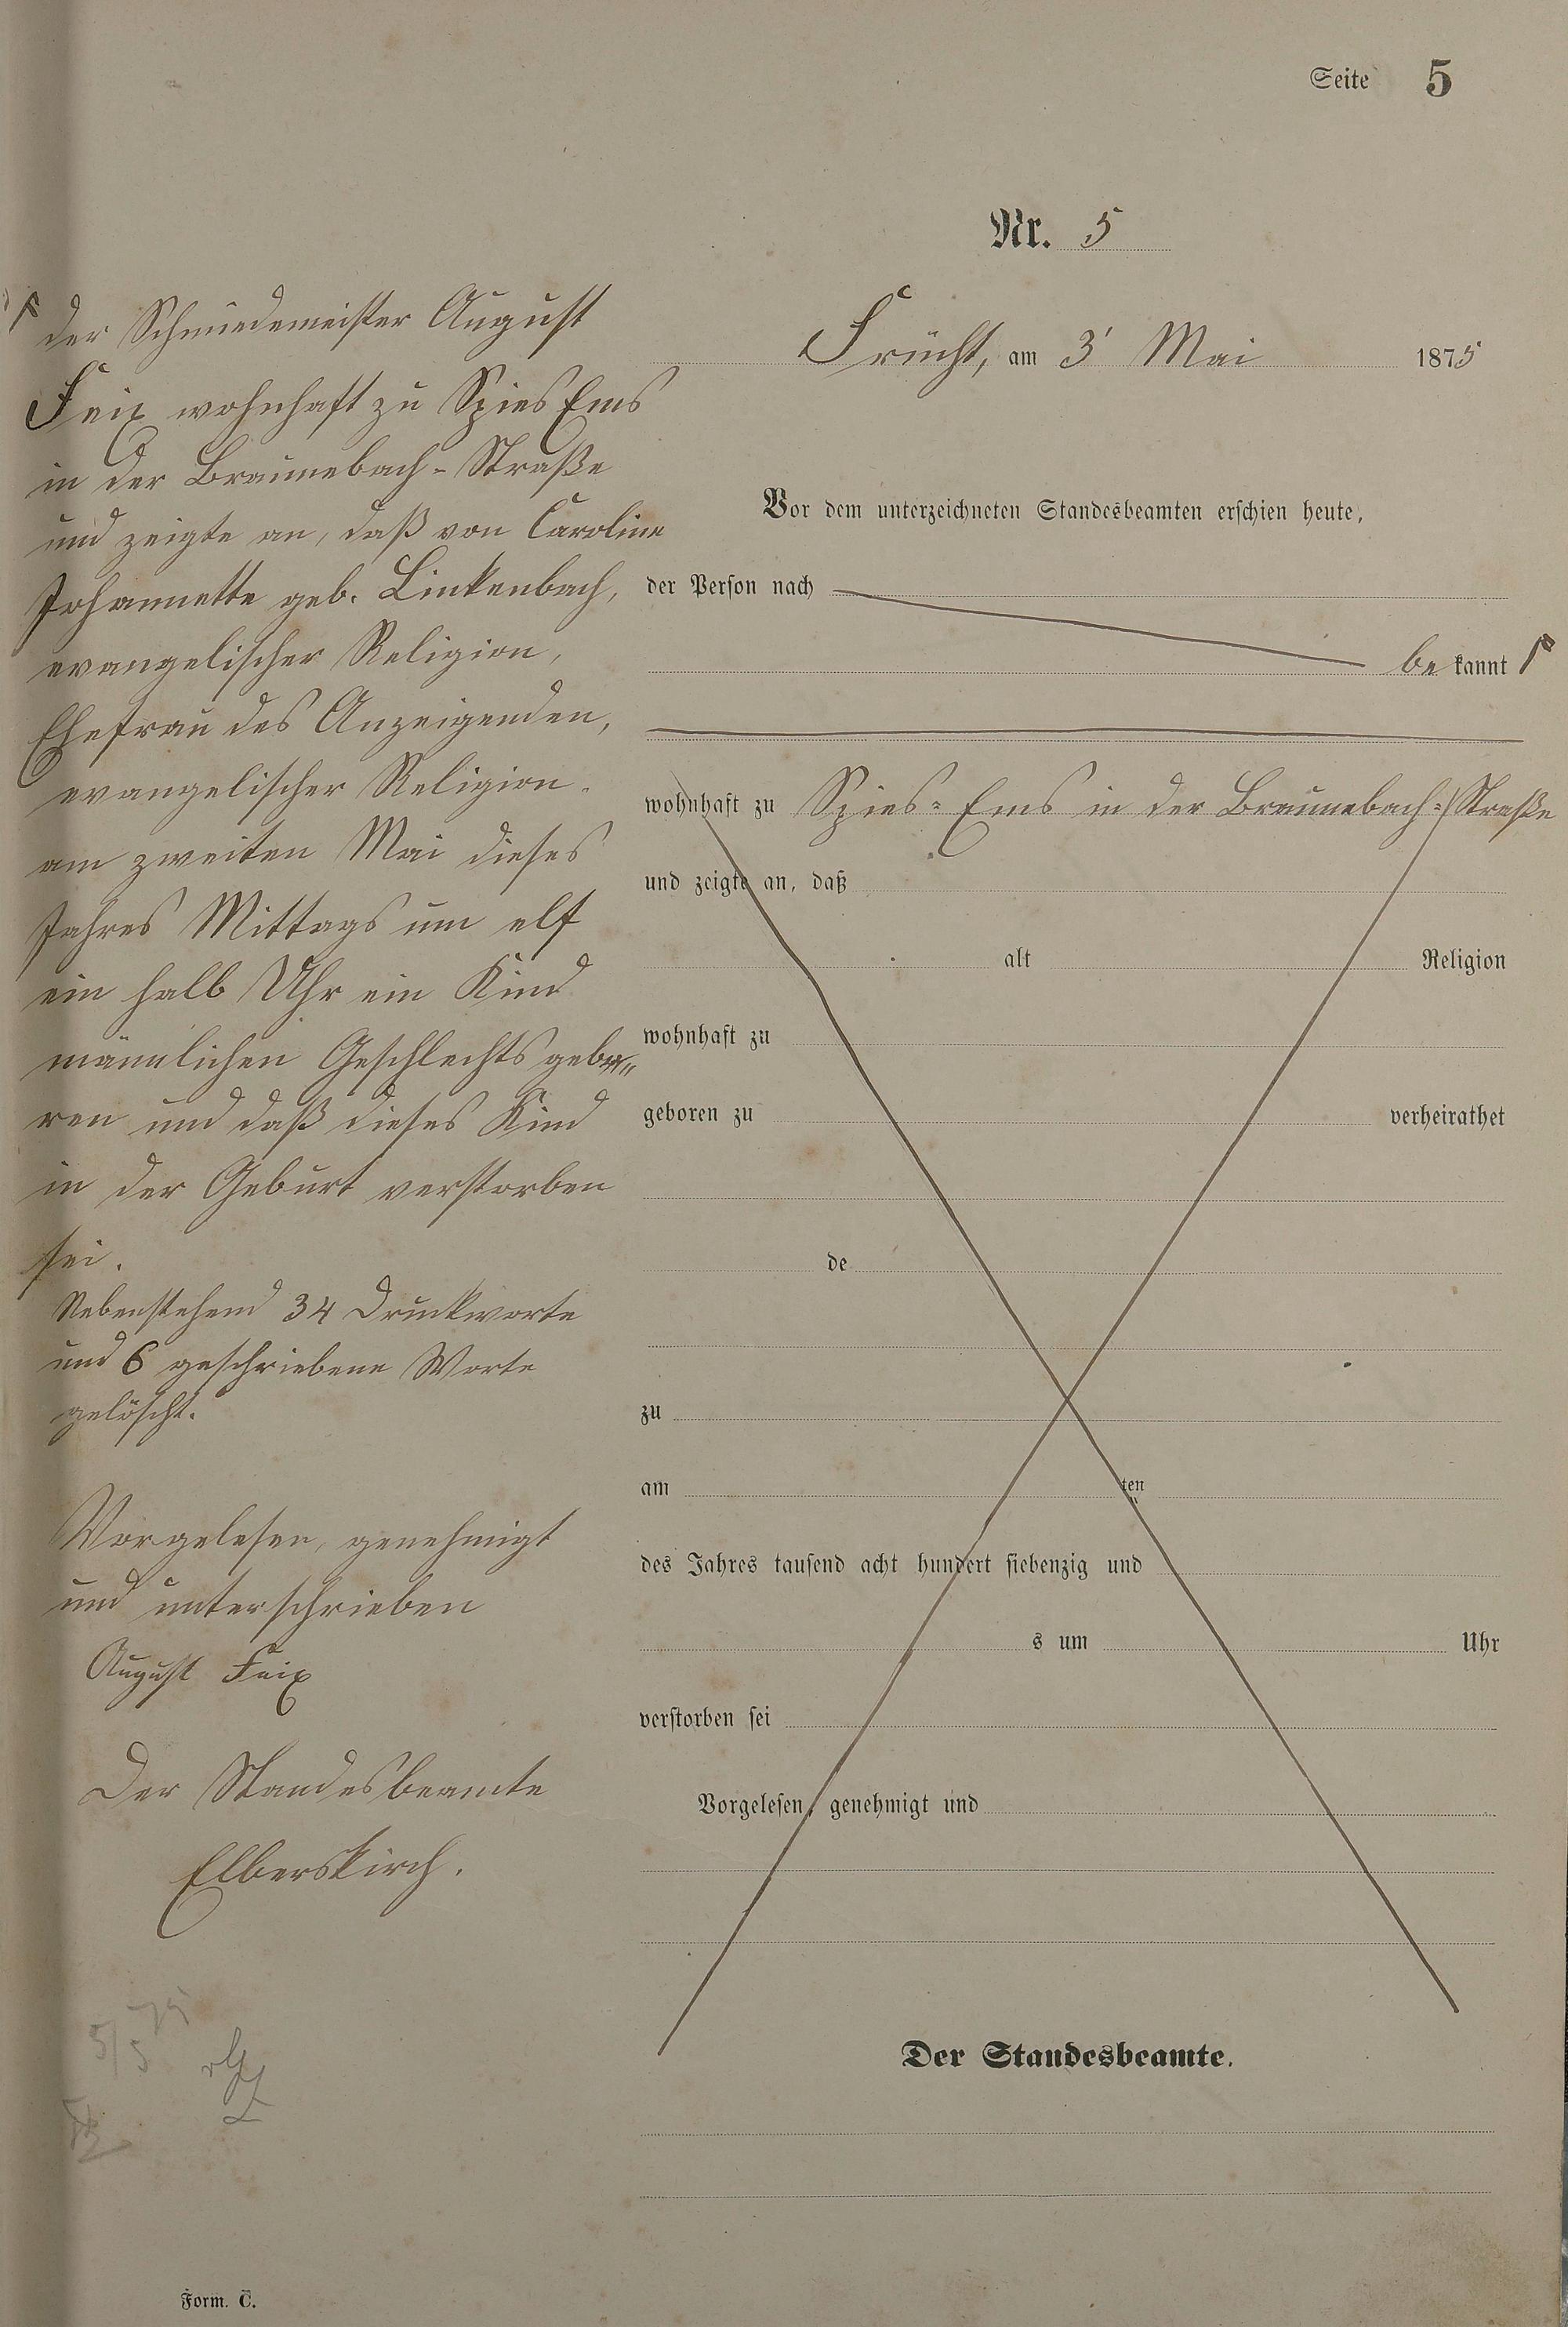 Seite 5
Nr. 5
Frücht, am 3' Mai 1875
Vor dem unterzeichneten Standesbeamten erschien heute,
der Person nach
bekannt
wohnhaft zu Spies-Ems in der Braunebach-Straße
und zeigte an, daß
alt Religion
wohnhaft zu
geboren zu verheirathet
de
zu
am ten
des Jahres tausend acht hundert siebenzig und
s um Uhr
verstorben sei
Vorgelesen, genehmigt und
Der Standesbeamte.
der Schmiedemeister August
Feix wohnhaft zu Spies Ems
in der Braunebach-Straße
und zeigte an, daß von Caroline
Johannette geb. Linkenbach,
evangelischer Religion,
Ehefrau des Anzeigenden,
evangelischer Religion.
am zweiten Mai dieses
Jahres Mittags um elf
ein halb Uhr ein Kind
männlichen Geschlechts gebo-
ren und daß dieses Kind
in der Geburt verstorben
sei.
Nebenstehend 34 Druckworte
und 6 geschriebene Worte
gelöscht.
Vorgelesen, genehmigt
und unterschrieben
August Feix
Der Standesbeamte
Elberskirch.
5/5 75
Form. C.